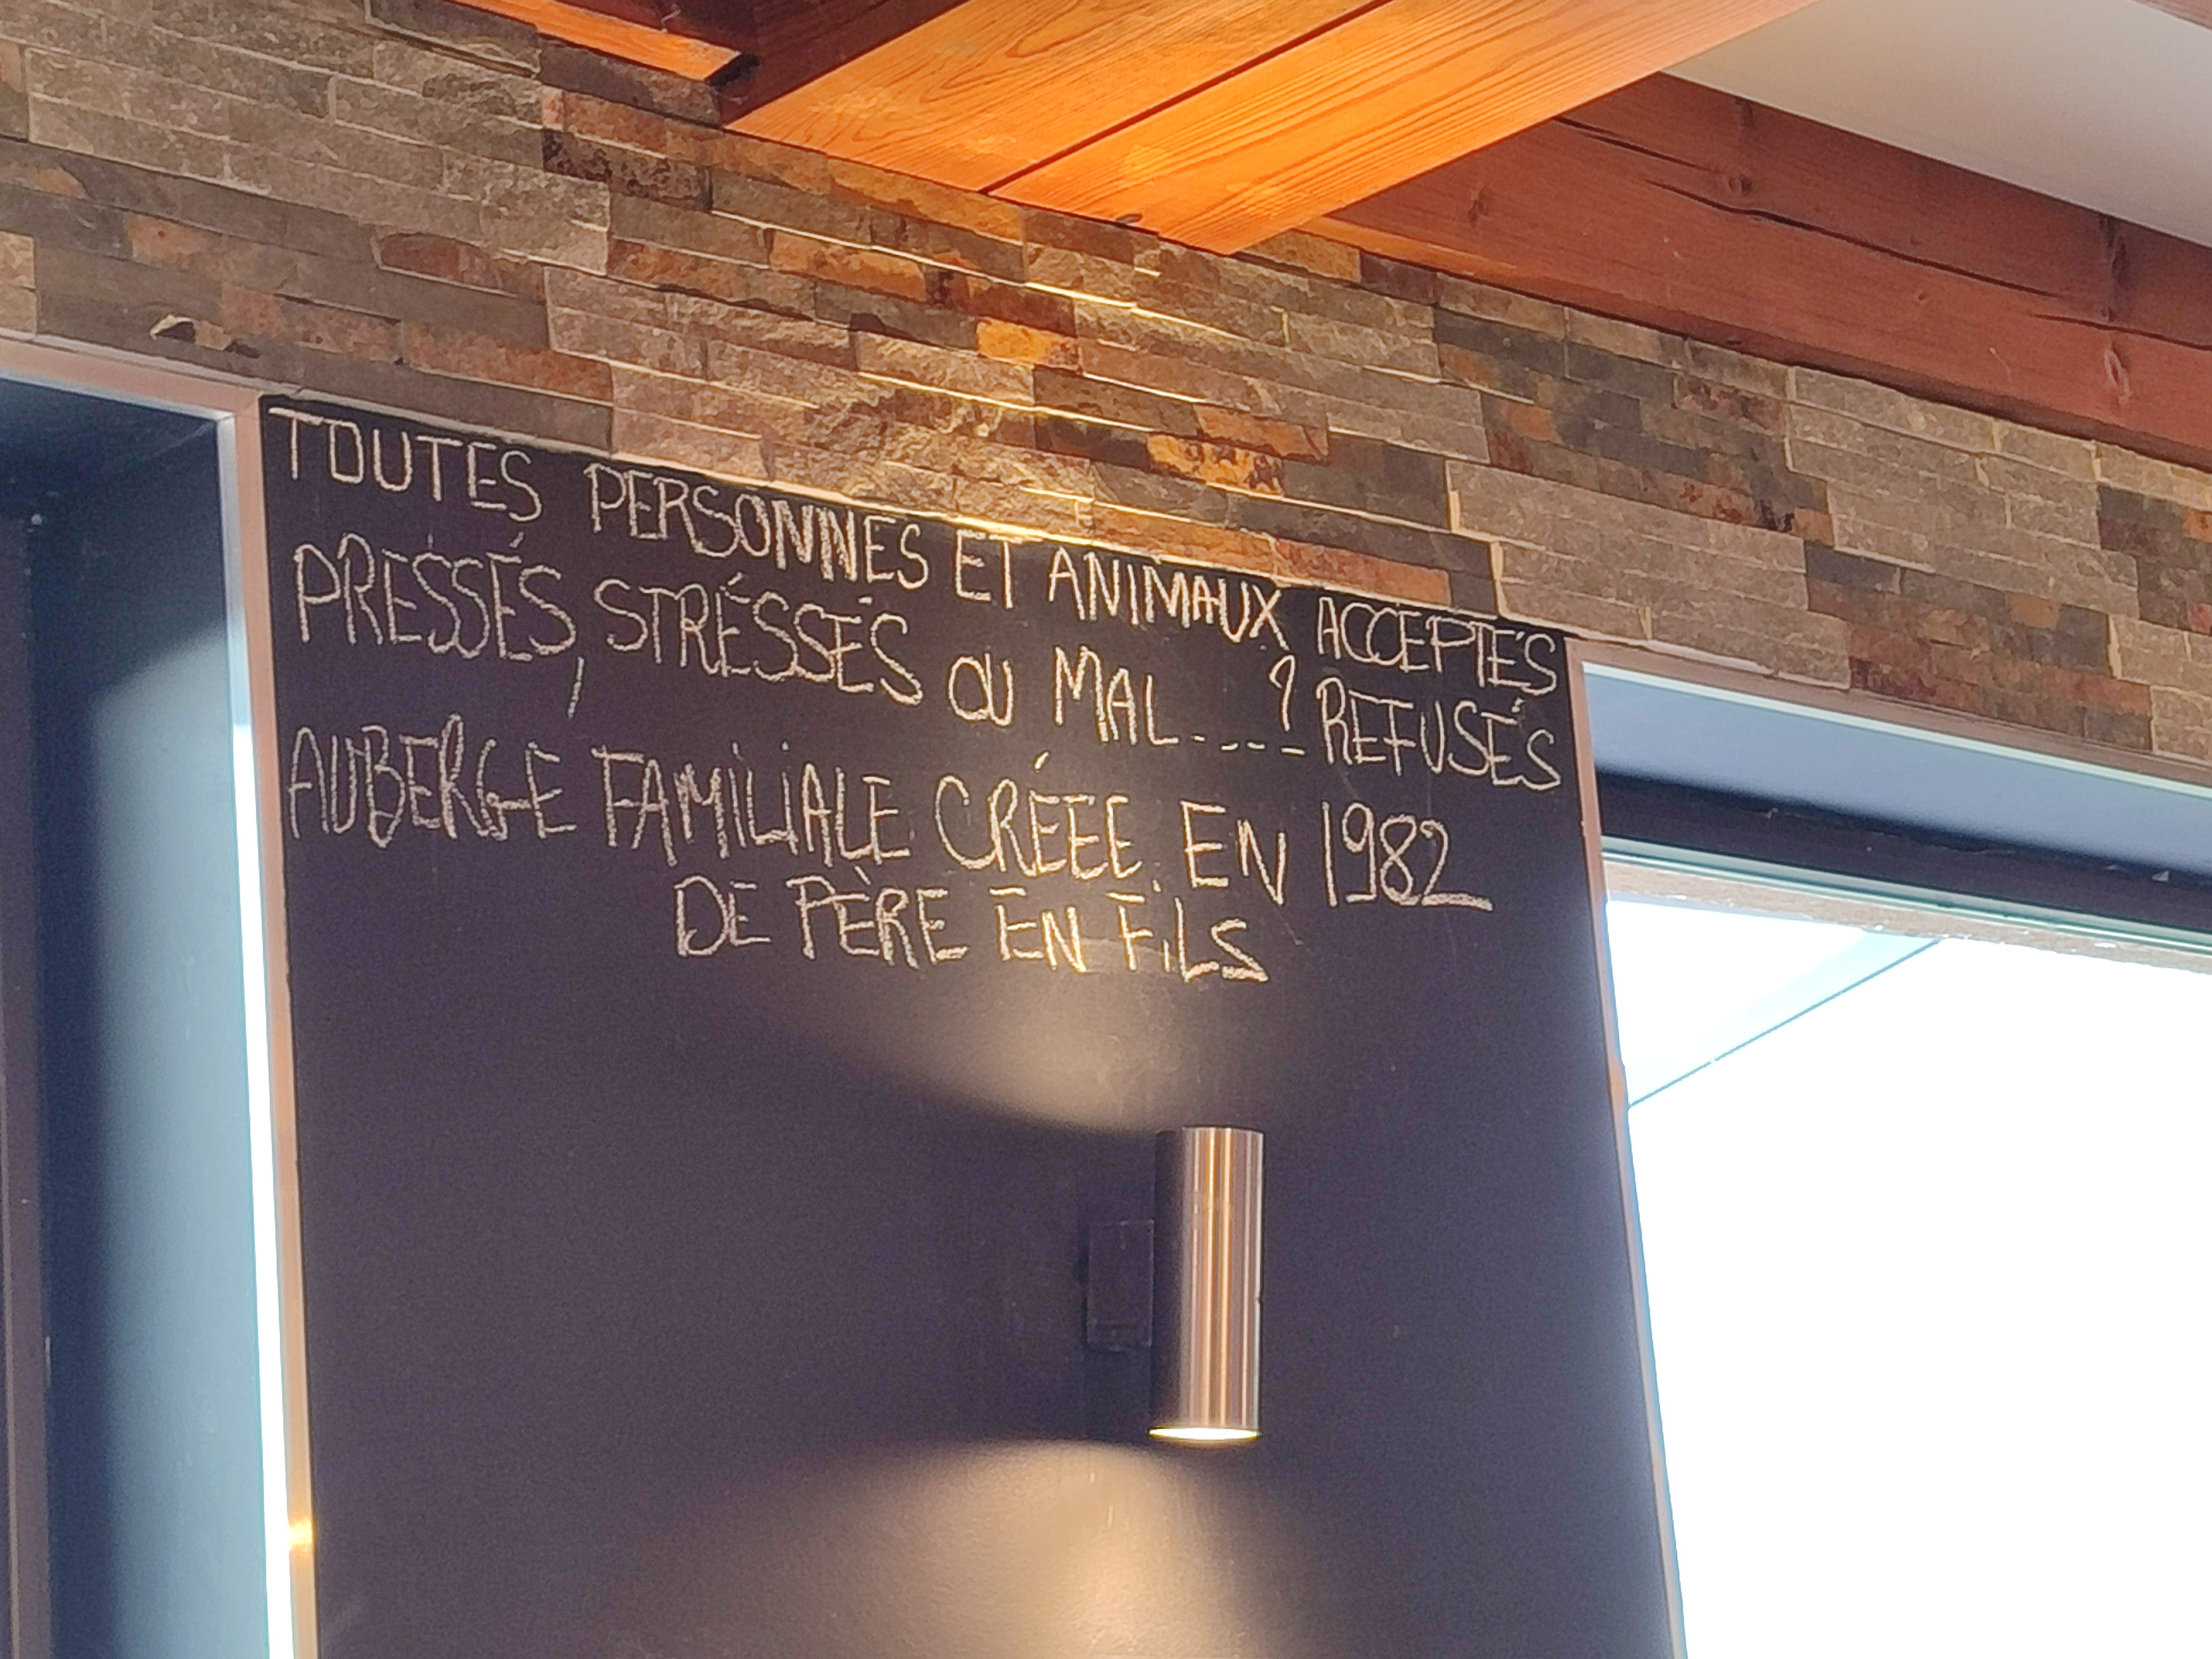 TOUTES PERSONNES ET ANIMAUX ACCEPTÉS
PRESSÉS, STRÉSSÉS OU MAL....? REFUSÉS
AUBERGE FAMILIALE CRÉEE EN 1982
DE PÈRE EN FILS